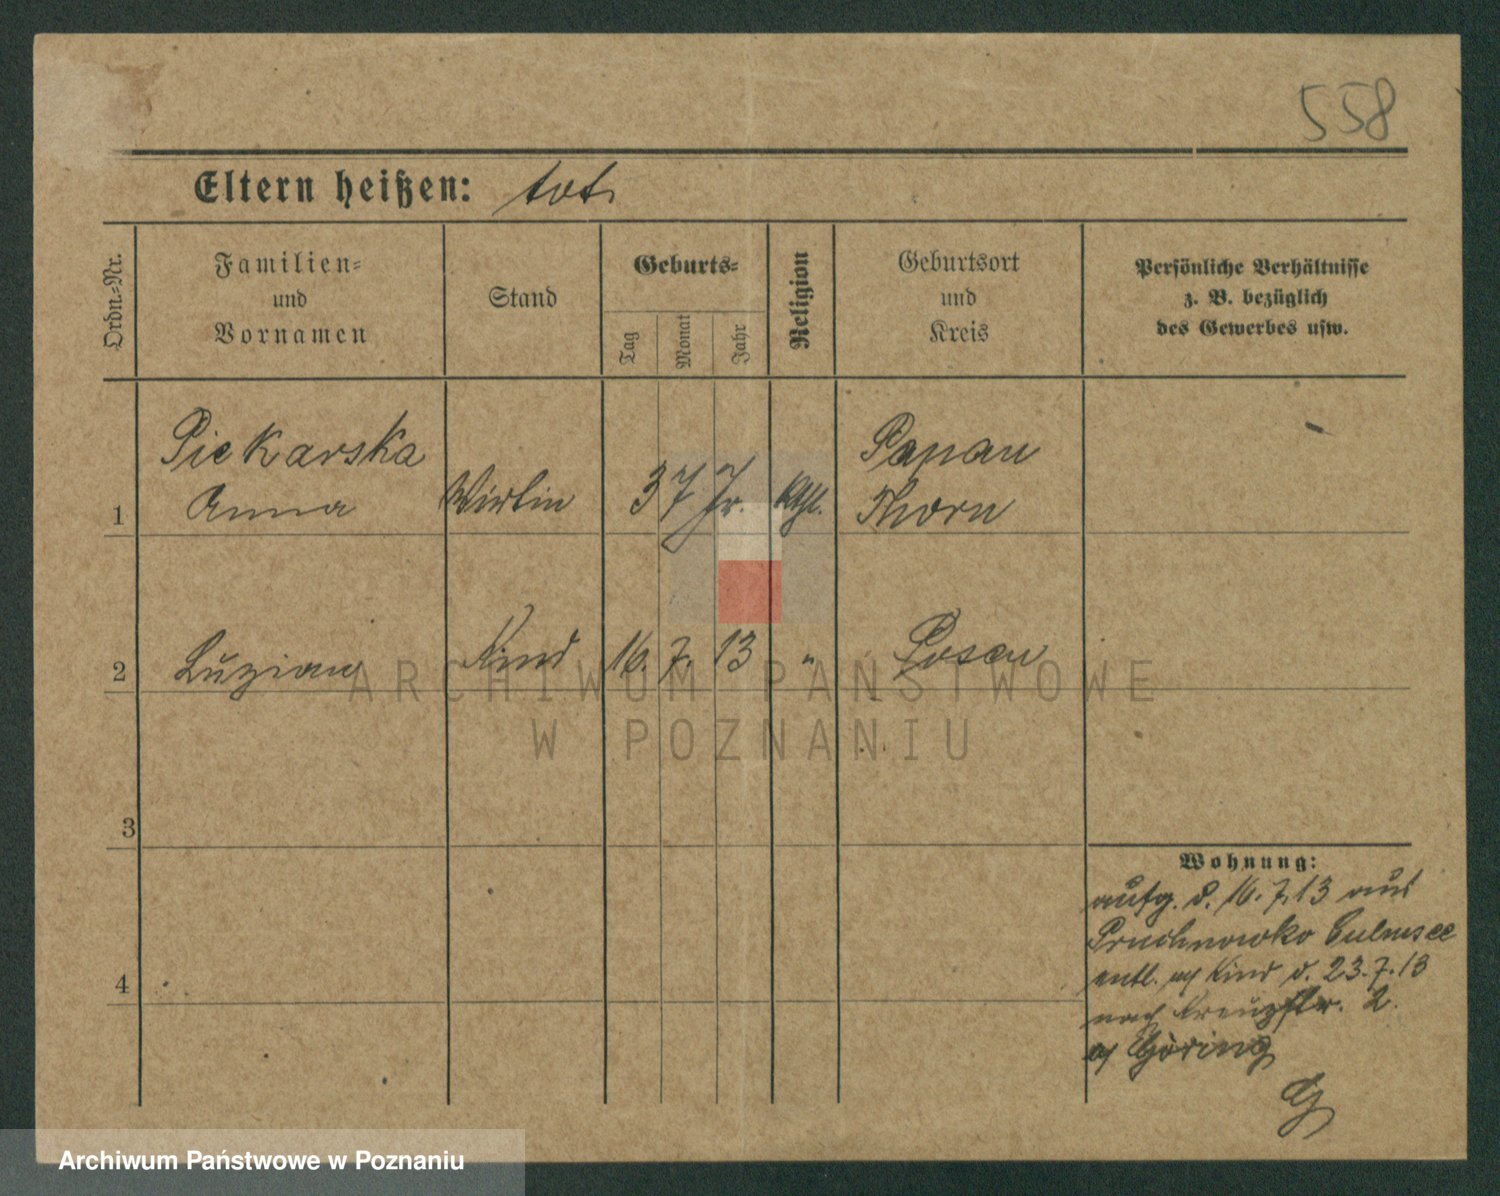 558
Eltern heißen: tot
Ordn.=Nr.
Familien=
und
Vornamen
Stand
Geburts=
Tag
Monat
Jahr
Religion
Geburtsort
und
Kreis
Persönliche Verhältnisse
z. B. bezüglich
des Gewerbes usw.
1
Piekarska
Anna
Wirtin
37 Jr.
Kthl.
Papau
Thorn
2
Luzian
Kind
16. 7. 13
"
Posen
3
4
Wohnung:
aufg. d. 16. 7. 13 aus
Culmsee
entl. Kind d. 23. 7. 13
nach Kreuzstr. 2.
Göring
ARCHIWUM PAŃSTWOWE
W POZNANIU
Archiwum Państwowe w Poznaniu